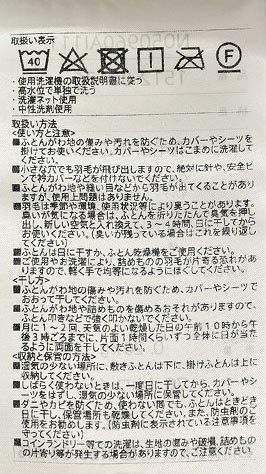 取扱い表示
40
F
・使用洗濯機の取扱説明書に従う
・高水位で単独で洗う
・洗濯ネット使用
・中性洗剤使用
取扱い方法
<使い方と注意>
■ふとんがわ地の傷みや汚れを防ぐため、カバーやシーツを
掛けてお使いください。カバーやシーツはこまめに洗濯してく
ださい。
■小さな穴でも羽毛が飛び出しますので、絶対に針や、安全ピ
ンで衿カバーなどを付けないでください。
■ふとんがわ地や縫い目などから羽毛が出てくることがあり
ますが、使用上問題はありません。
■羽毛は季節や環境、使用状況等により臭うことがあります。
臭いが気になる場合は、ふとんを折りたたんで臭気を押し
出し、新しい空気と入れ換えて、3~4時間、日に干してから
お使いください。(臭いが残っている場合はこれを繰り返し
てください)
■ふとんは日に干すか、ふとん乾燥機をご使用ください。
■ご使用やお洗濯により、詰めものの羽毛が片寄る恐れがあ
りますので、軽く手で均等になるようにほぐしてください。
<干し方>
■ふとんがわ地の傷みや汚れを防ぐため、カバーやシーツで
おおって干してください。
■ふとんがわ地や詰めものを傷めるおそれがありますので、
ふとん叩きなどで強く叩かないでください。
■月に1~2回、天気のよい乾燥した日の午前10時から午
後3時ごろまでに、片面1時間くらいずつ全体に日が当た
るように両面を干してください。
<収納と保管の方法>
■湿気の少ない場所に、敷きふとんは下に、掛けふとんは上に
収納してください。
■しばらく使わないときは、一度日に干してから、カバーやシ
ーツをはずし、湿気の少ない場所に保管してください。
■ダニやカビを防ぐため、使わない間でも、ふとんはときどき
日に干し、保管場所も乾燥してください。また、防虫剤のご
使用をお勧めします。(防虫剤に表示されている注意事項を
守ってください)
■コインランドリー等での洗濯は、生地の傷みや破損、詰めもの
の片寄り等が発生する場合がありますので、ご注意ください。